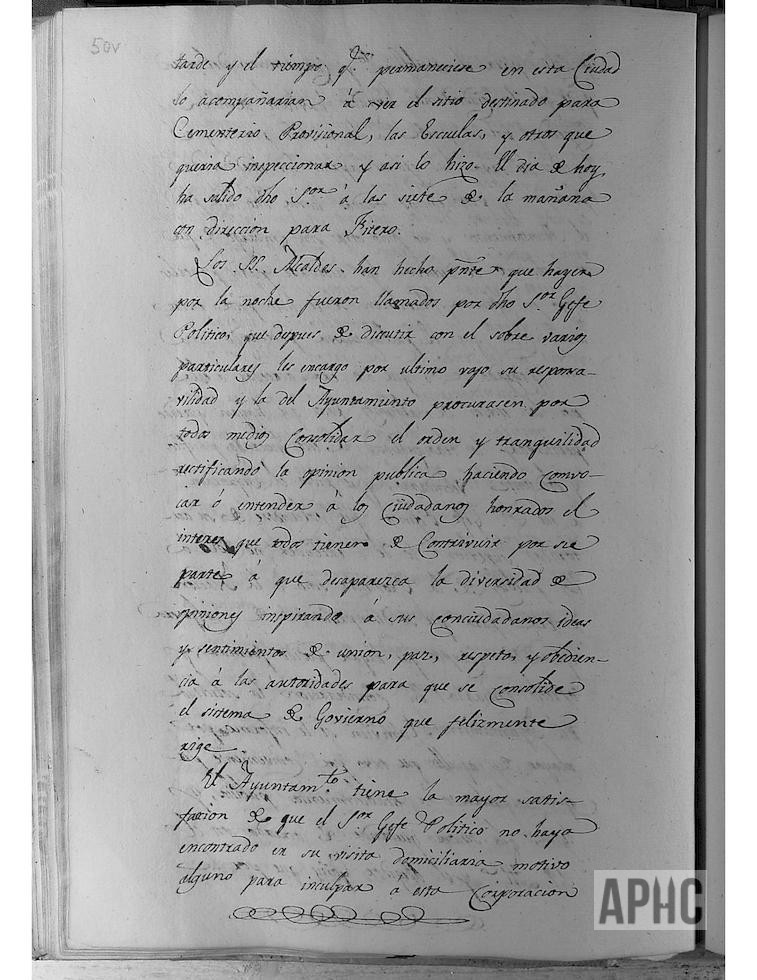 50v
tarde y el tiempo q.e permaneciese en esta Ciudad
lo acompañarian á ver el sitio destinado para
Cementerio Provisional, las Escuelas, y otros que
queria inspeccionar y asi lo hizo. El dia de hoy
ha salido dho S.or á las siete de la mañana
con direccion para Fitero.
Los SS. Alcaldes han hecho pnte que hayer
por la noche fueron llamados por dho S.or Gefe
Politico, que despues de discutir con el sobre varios
particulares les encargo por ultimo vajo su responsa-
vilidad y la del Ayuntamiento procurasen por
todos medios Consolidar el orden y tranquilidad
rectificando la opinion publica haciendo convo-
car ó entender á los Ciudadanos honrados el
interes que todos tienen de Contrivuir por su
parte á que desaparezca la diversidad de
opiniones inspirando á sus conciudadanos ideas
y sentimientos de union, paz, respeto, y obedien-
cia á las autoridades para que se Consolide
el sistema de Govierno que felizmente
rige.
El Ayuntam.to tiene la mayor satis-
facion de que el S.or Gefe Politico no haya
encontrado en su visita domiciliaria motivo
alguno para inculpar á esta Corporacion
APHC